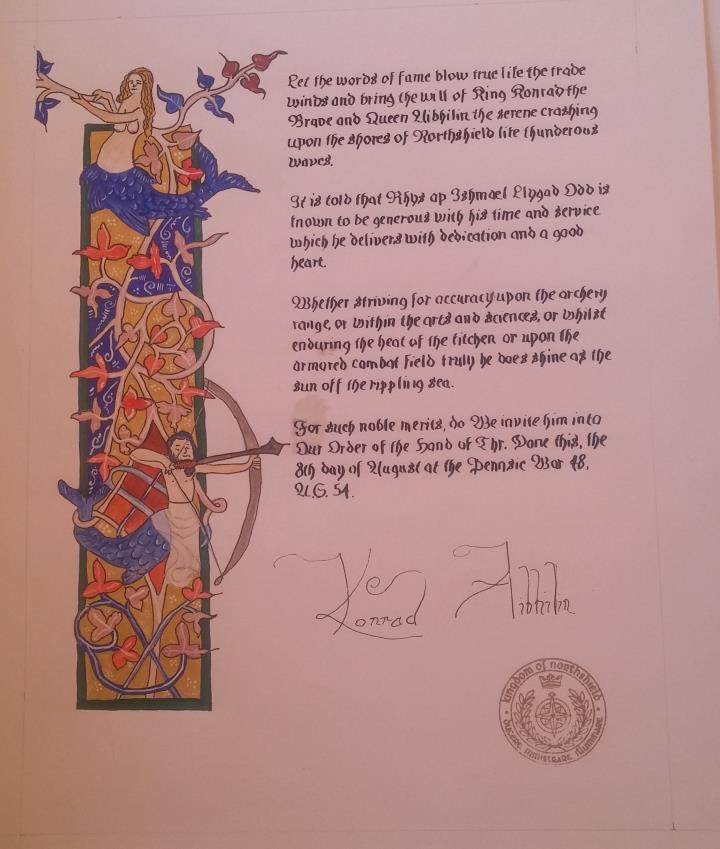 Let the words of fame blow true like the trade
winds and bring the will of King Konrad the
Brave and Queen Aibhilin the serene crashing
upon the shores of Northshield like thunderous
waves.
It is told that Rhys ap Ishmael Llygad Ddd is
known to be generous with his time and service
which he delivers with dedication and a good
heart.
Whether striving for accuracy upon the archery
range, or within the arts and sciences, or whilst
enduring the heat of the kitchen or upon the
armored combat field truly he does shine as the
sun off the rippling sea.
For such noble merits, do We invite him into
Our Order of the Hand of Tyr. Done this, the
8th day of August at the Pennsic War 48,
A.S. 54.
Konrad Aibhilin
kingdom of northshield
ducere ministrare illuminare